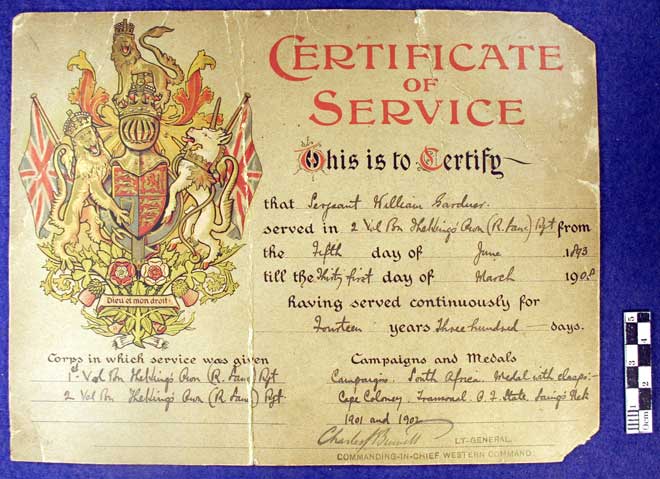 CERTIFICATE
OF
SERVICE
This is to Certify
that Sergeant William Gardner.
served in 2 Vol Bn The King's Own (R. Lanc) Rgt from
the Fifth day of June 1893
till the Thirty first day of March 1908
having served continuously for
Fourteen years Three hundred days.
Corps in which service was given
1st Vol Bn The King's Own (R. Lanc) Rgt
2 Vol Bn The King's Own (R. Lanc) Rgt.
Campaigns and Medals
Campaigns. South Africa. Medal with clasps:-
Cape Coloney. Transvaal. O. F. State. Laing's Nek
1901 and 1902
Charles
LT-GENERAL.
COMMANDING-IN-CHIEF WESTERN COMMAND.
Dieu et mon droit
0cm 1 2 3 4 5